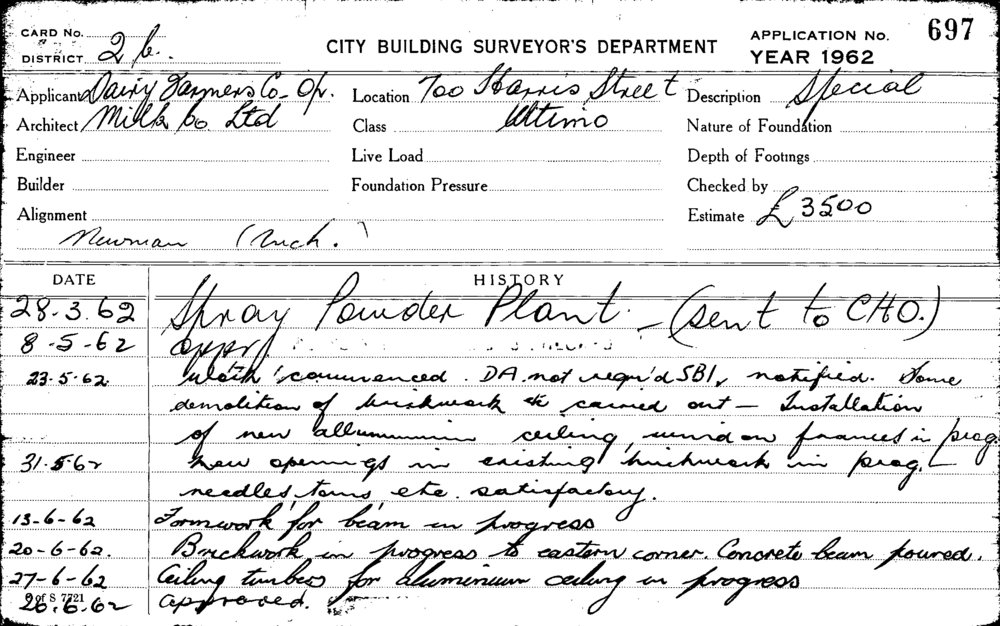 CARD No.
DISTRICT 2 b.
CITY BUILDING SURVEYOR'S DEPARTMENT
APPLICATION No. 697
YEAR 1962
Applicant Dairy Farmers Co-Op. Location 700 Harris Street Description Special
Architect Milk Co Ltd Class Ultimo Nature of Foundation
Engineer Live Load Depth of Footings
Builder Foundation Pressure Checked by
Alignment Estimate £ 3500
Newman
DATE HISTORY
28.3.62 Spray Powder Plant. - (sent to CHO.)
8-5-62 appr.
23.5.62. Work commenced. DA not requ'd SBI, notified. Some
demolition of brickwork etc carried out - Installation
of new allumminim ceiling, window frames in prog.
31.5.62 New openings in existing brickwork in prog. -
needles, toms etc. satisfactory.
13-6-62 Formwork for beam in progress
20-6-62. Brickwork in progress to eastern corner. Concrete beam poured.
27-6-62 Ceiling timbers for aluminium ceiling in progress
of S 7721
26.6.62 approved.